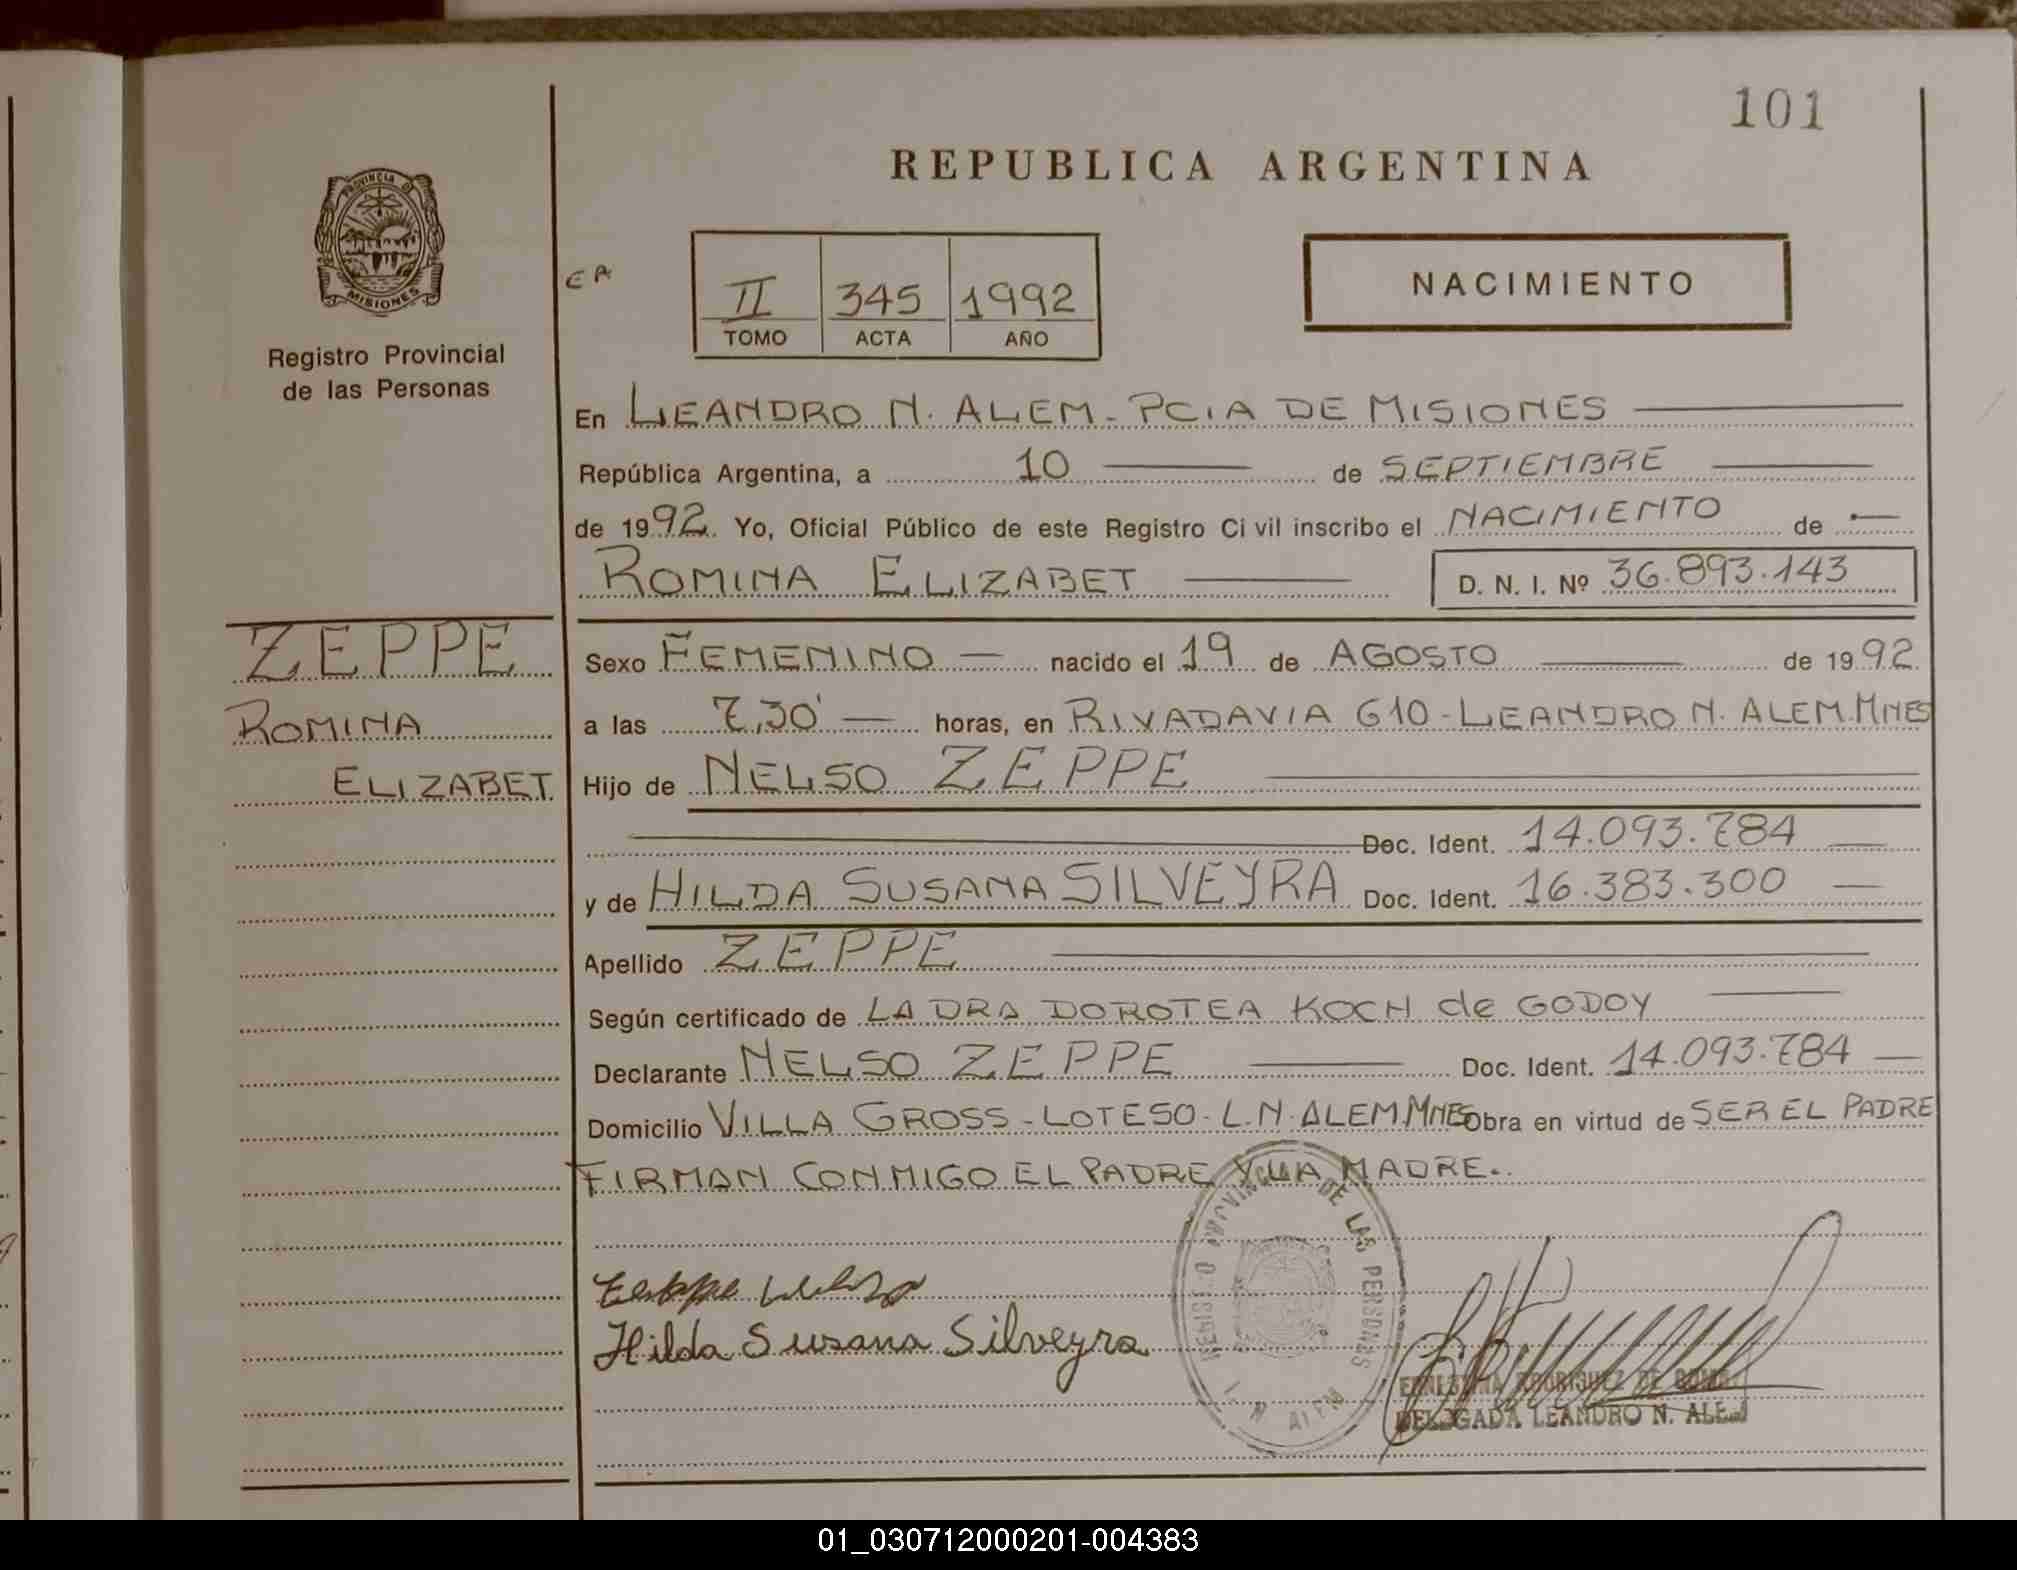 101
REPUBLICA ARGENTINA
PROVINCIA DE
MISIONES
Registro Provincial
de las Personas
II 345 1992
TOMO ACTA AÑO
NACIMIENTO
En LEANDRO N. ALEM - PCIA DE MISIONES
República Argentina, a 10 de SEPTIEMBRE
de 1992. Yo, Oficial Público de este Registro Civil inscribo el NACIMIENTO de
ROMINA ELIZABET D. N. I. Nº 36.893.143
ZEPPE
ROMINA
ELIZABET
Sexo FEMENINO nacido el 19 de AGOSTO de 1992
a las 7,30' horas, en RIVADAVIA 610 - LEANDRO N. ALEM. MNES
Hijo de NELSO ZEPPE
Doc. Ident. 14.093.784
y de HILDA SUSANA SILVEYRA Doc. Ident. 16.383.300
Apellido ZEPPE
Según certificado de LA DRA DOROTEA KOCH de GODOY
Declarante NELSO ZEPPE Doc. Ident. 14.093.784
Domicilio VILLA GROSS - LOTE 50 - L.N. ALEM. MNES Obra en virtud de SER EL PADRE
FIRMAN CONMIGO EL PADRE Y LA MADRE.
Zeppe Nelso
Hilda Susana Silveyra
REGISTRO PROVINCIAL DE LAS PERSONAS
L. N. ALEM
ERNESTINA RODRIGUEZ DE
DELEGADA LEANDRO N. ALEM
01_030712000201-004383